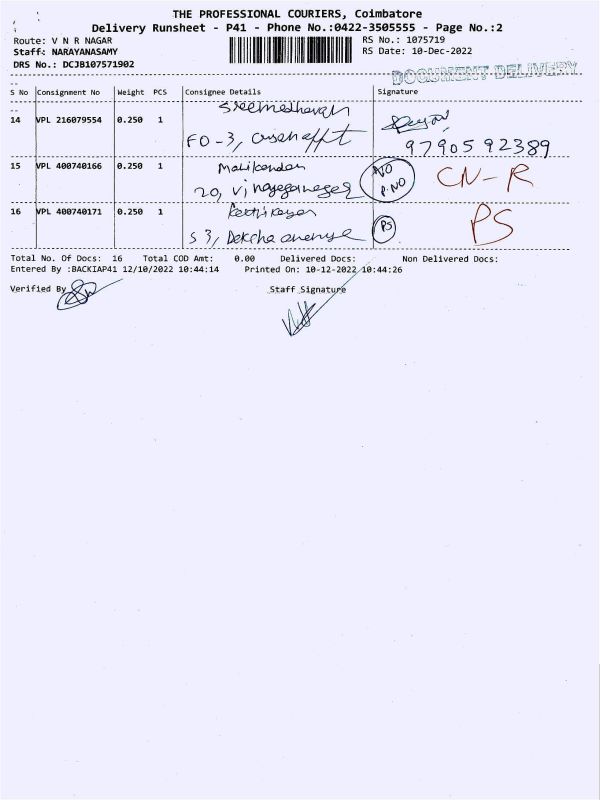 THE PROFESSIONAL COURIERS, Coimbatore
Delivery Runsheet - P41 - Phone No.:0422-3505555 - Page No.:2
Route: V N R NAGAR
RS No.: 1075719
Staff: NARAYANASAMY
RS Date: 10-Dec-2022
DRS No.: DCJB107571902
DOCUMENT DELIVERY
S No Consignment No Weight PCS Consignee Details Signature
14 VPL 216079554 0.250 1
FO-3,
9790592389
15 VPL 400740166 0.250 1 Manikandan NO P.NO CN-R
20,
16 VPL 400740171 0.250 1 PS PS
S 3,
Total No. Of Docs: 16 Total COD Amt: 0.00 Delivered Docs: Non Delivered Docs:
Entered By :BACKIAP41 12/10/2022 10:44:14 Printed On: 10-12-2022 10:44:26
Verified By Staff Signature